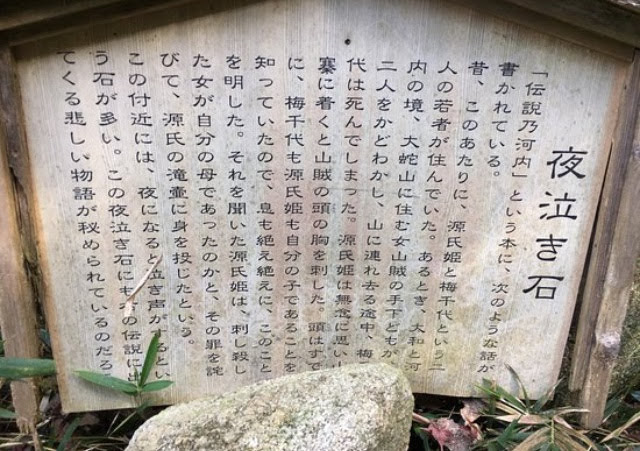 夜泣き石
「伝説乃河内」という本に、次のような話が
書かれている。
昔、このあたりに、源氏姫と梅千代という二
人の若者が住んでいた。あるとき、大和と河
内の境、大蛇山に住む女山賊の手下どもが
二人をかどわかし、山に連れ去る途中、梅
代は死んでしまった。源氏姫は無念に思い
寨に着くと山賊の頭の胸を刺した。頭はす
に、梅千代も源氏姫も自分の子であることを
知っていたので、息も絶え絶えに、このこと
を明した。それを聞いた源氏姫は、刺し殺し
た女が自分の母であったのかと、その罪を詫
びて、源氏の滝壷に身を投じたという。
この付近には、夜になると泣き声がするとい
う石が多い。この夜泣き石にも の伝説に出
てくる悲しい物語が秘められているのだろ